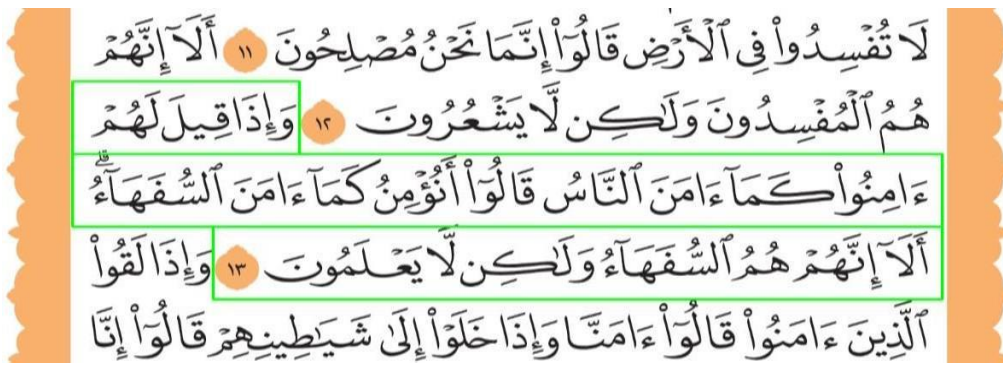 لَا تُفْسِدُوا۟ فِى ٱلْأَرْضِ قَالُوٓا۟ إِنَّمَا نَحْنُ مُصْلِحُونَ ١١ أَلَآ إِنَّهُمْ
هُمُ ٱلْمُفْسِدُونَ وَلَٰكِن لَّا يَشْعُرُونَ ١٢ وَإِذَا قِيلَ لَهُمْ
ءَامِنُوا۟ كَمَآ ءَامَنَ ٱلنَّاسُ قَالُوٓا۟ أَنُؤْمِنُ كَمَآ ءَامَنَ ٱلسُّفَهَآءُ ۗ
أَلَآ إِنَّهُمْ هُمُ ٱلسُّفَهَآءُ وَلَٰكِن لَّا يَعْلَمُونَ ١٣ وَإِذَا لَقُوا۟
ٱلَّذِينَ ءَامَنُوا۟ قَالُوٓا۟ ءَامَنَّا وَإِذَا خَلَوْا۟ إِلَىٰ شَيَٰطِينِهِمْ قَالُوٓا۟ إِنَّا